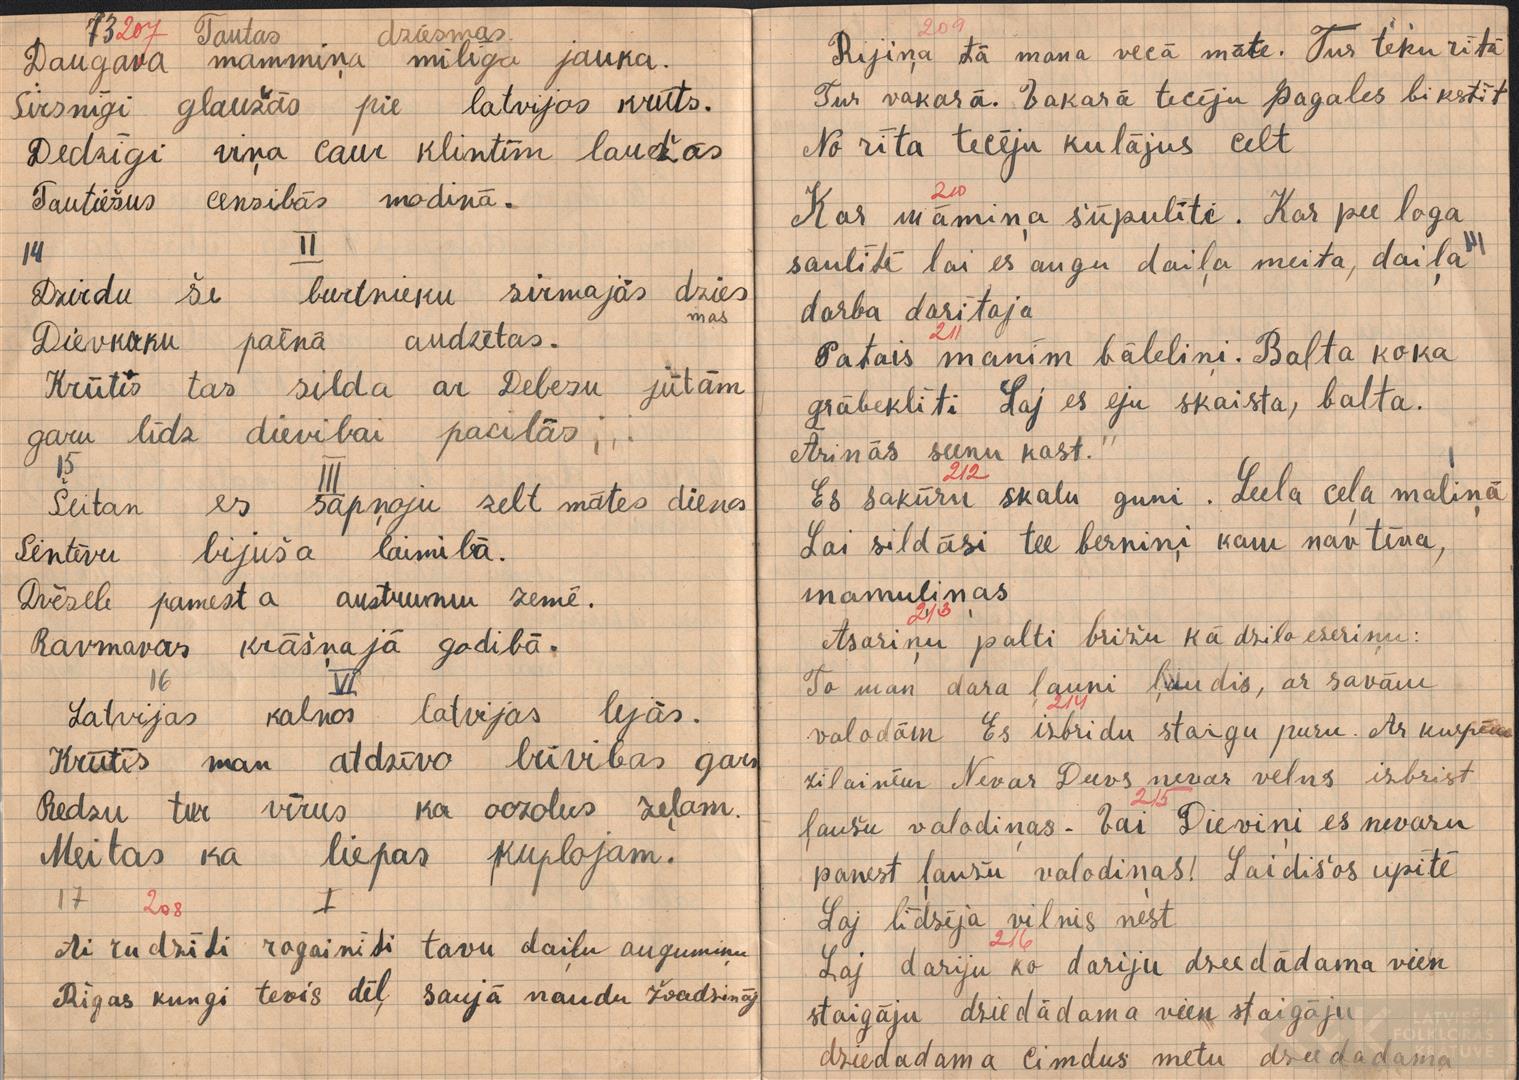 73 207 Tautas dziesmas.
Daugava mammiņa milīga jauka.
Sirsnīgi glaužās pie latvijas krūts.
Dedzīgi viņa caur klintīm laužas
Tautiešus censibās modinā.
14 II
Dzirdu še burtnieku sirmajās dzies
mas
Dievkaku paēnā audzētas.
Krūtis tas silda ar Debesu jūtām
garu līdz dievibai pacilās
15 III
Šeitan es sapņoju zelt mātes dienas
Sentēvu bijuša laimibā.
Dvēsele pamesta austrumu zemē.
Ravmavas krāšņajā godibā.
16 VI
Latvijas kalnos latvijas lejās.
Krūtīs man atdzīvo brīvibas gars
Redzu tur vīrus ka oozolus zeļam.
Meitas ka liepas kuplojam.
17 208 I
Ai rudzīti rogainīti tavu daiļu augumiņu
Rīgas kungi tevis dēļ saujā naudu žvadzināj
209
Rijiņa tā mana vecā māte. Tur teku rītā
Tur vakarā. Vakarā tecēju pagales bikstīt
No rīta tecēju kulājus celt
210
Kar māmiņa šūpulīti. Kar pee loga
saulītē lai es augu daiļa meita, daiļa
darba darītaja
211
Patais manim bāleliņi. Balta koka
grābeklīti Laj es eju skaista, balta.
Ārinās seenu kast."
212
Es sakūru skalu guni. Leela ceļa maliņā
Lai sildāsi tee berniņi kam nav tēva,
mamuliņas
213
Asariņu palti brižu kā dzilo ezeriņu:
To man dara ļauni ļaudis, ar savām
214
valodām Es izbridu staigu puru. Ar kurpēm
zilainēm Nevar Deevs nevar velns izbrist
215
ļaužu valodiņas- Vai Dieviņi es nevaru
panest ļaužu valodiņas! Laidišos upītē
Laj līdzēja vilnis nest
216
Laj dariju ko dariju dzeedādama veen
staigāju dziedādama veen staigāju
dziedadama cimdus metu dzeedadama
LATVIEŠU
FOLKLORAS
KRĀTUVE